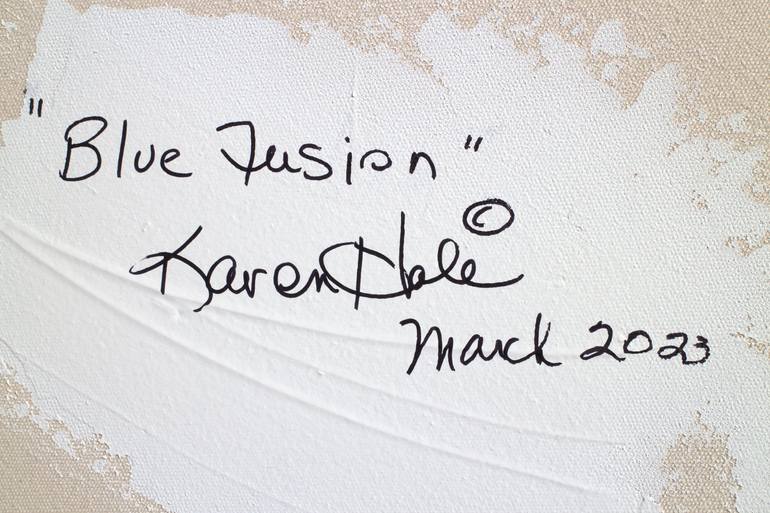 "Blue Fusion"
Karen Hale ©
March 2023